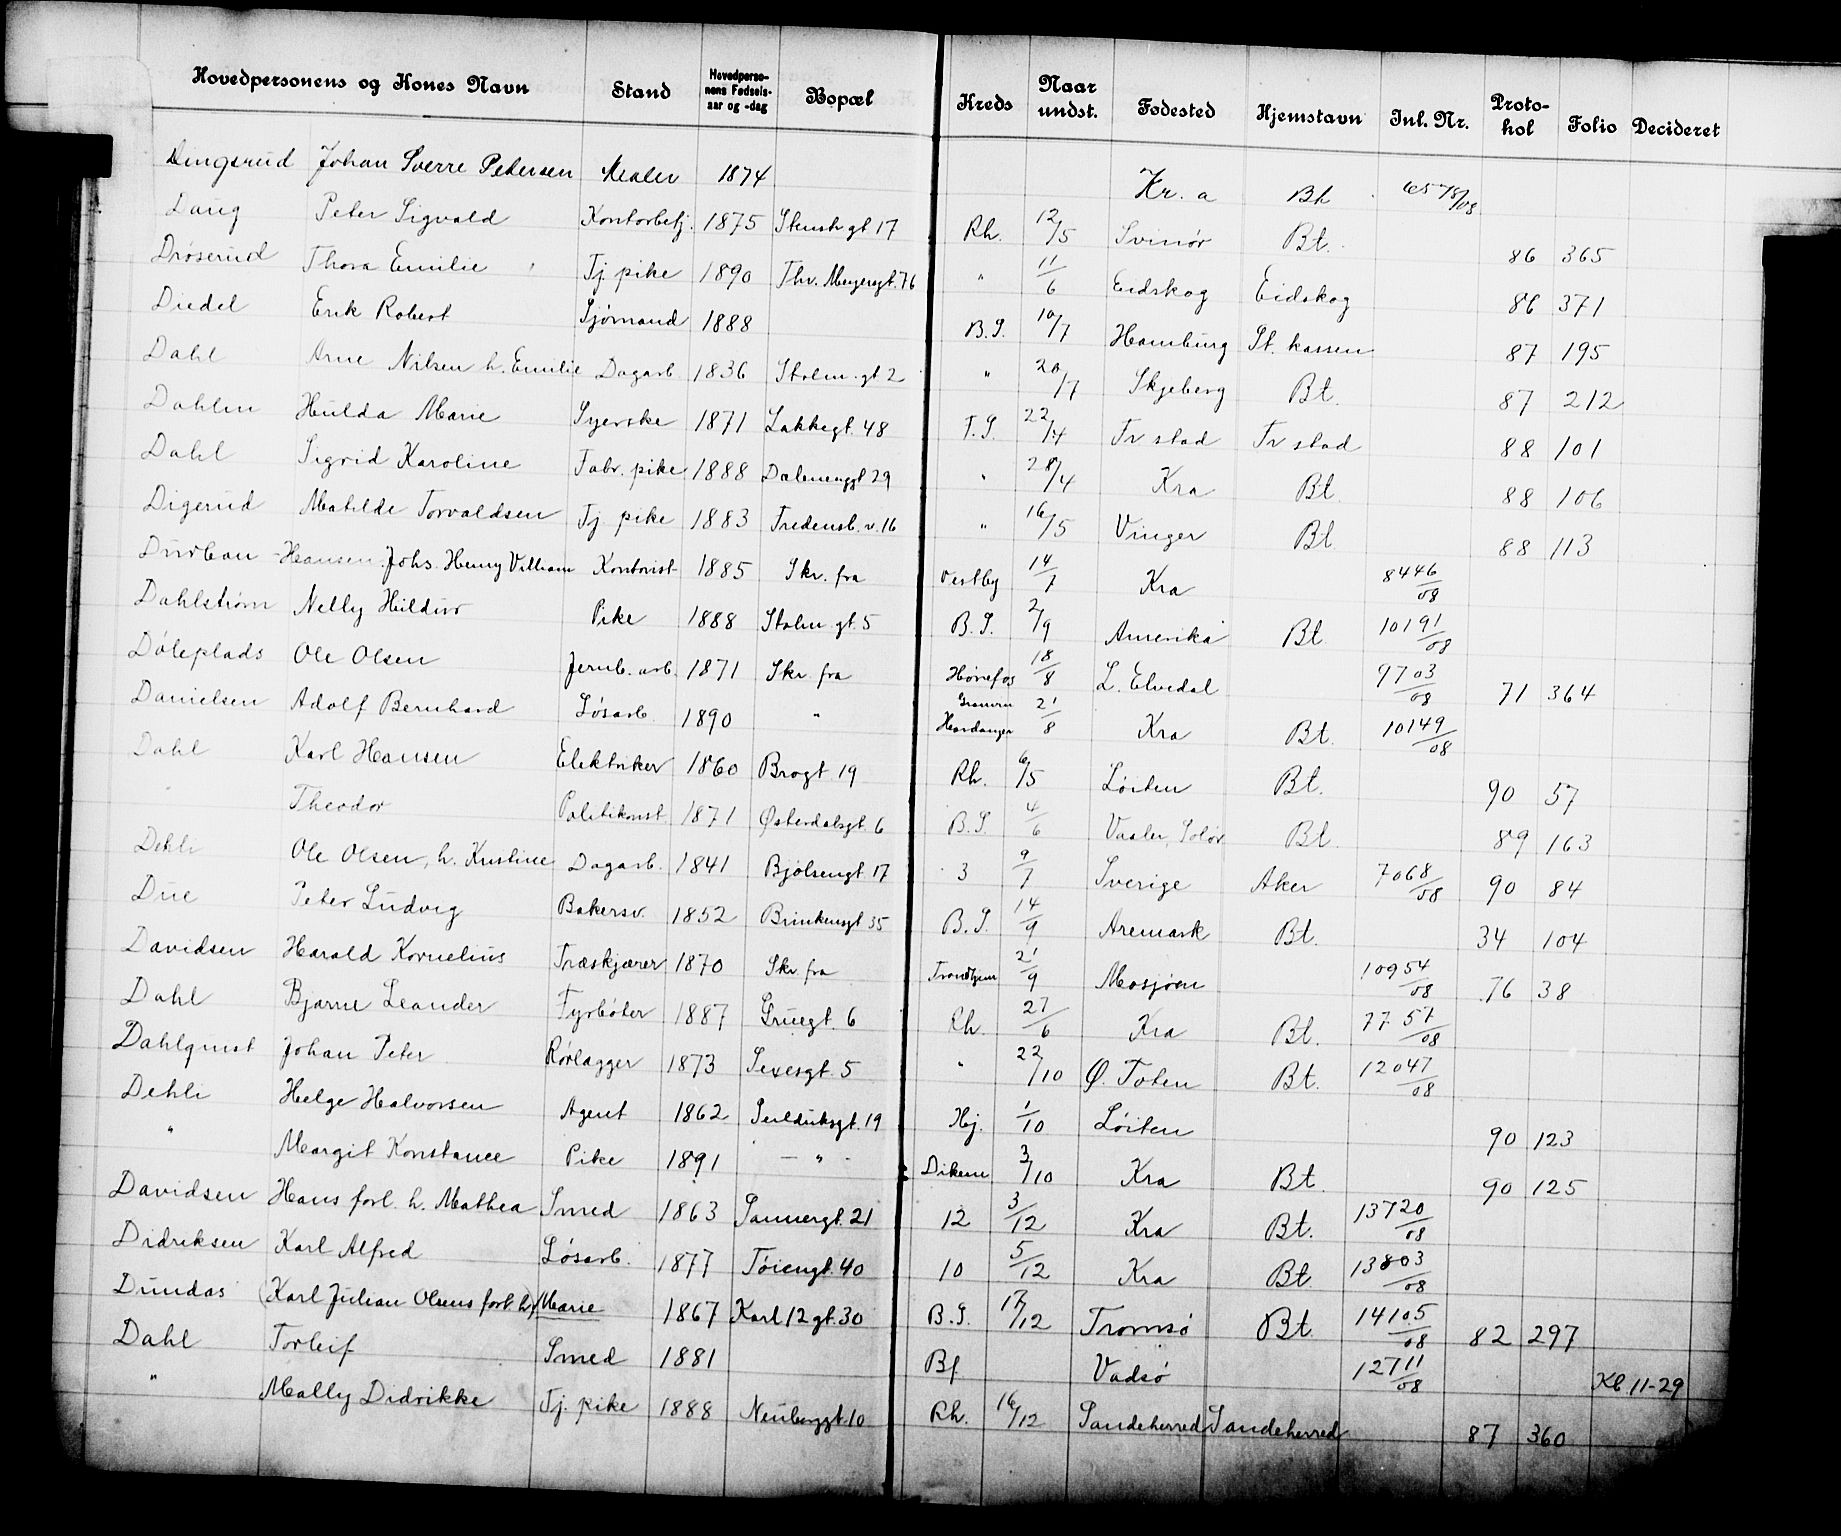 Hovedpersonens og Kones Navn Stand Hovedpersonens Fødsels-aar og -dag Bopæl Kreds Naar undst. Fødested Hjemstavn Inl. Nr. Protokol Folio Decideret
Dengsrud Johan Sverre Pedersen Maler 1874 Kr. a Bt 6578/08
Daug Peter Sigvald Kontorbetj. 1875 Stensb gt 17 Rh. 12/5 Svinör Bt. 86 365
Dröserud Thora Emilie Tj. pike 1890 Thv. Meyersgt. 76 " 11/6 Eidskog Eidskog 86 371
Diedel Erik Robert Sjömand 1888 B.S. 10/7 Hamburg St. kassen 87 195
Dahl Arne Nilsen h. Emilie Dagarb. 1836 Stolm. gt 2 " 20/7 Skjeberg Bt. 87 212
Dahlin Hulda Marie Syerske 1871 Lakkegt. 48 T.S. 22/4 Fr stad Fr stad 88 101
Dahl Sigrid Karoline Fabr. pike 1888 Dælenenggt 29 " 28/4 Kra Bt. 88 106
Digerud Matilde Torvaldsen Tj. pike 1883 Fredensb. v. 16 " 16/5 Vinger Bt 88 113
Durban - Hansen Johs. Henry Villiam Kontorist 1885 Skr. fra Vestby 14/7 Kra 8446/08
Dahlström Nelly Hildur Pike 1888 Stolm. gt. 5 B.S. 2/9 Amerika Bt. 10191/08
Döleplads Ole Olsen Jernb. arb. 1871 Skr. fra Hönefos 18/8 L. Elvedal 9703/08 71 364
Danielsen Adolf Bernhard Lösarb. 1890 " Hardanger 21/8 Kra Bt. 10149/08
Dahl Karl Hansen Elektriker 1860 Brogt. 19 Rh. 6/5 Löiten Bt. 90 57
" Theodor Politikonst. 1871 Østerdalsgt. 6 B.S. 4/6 Vaaler, Solör Bt. 89 163
Dehli Ole Olsen, h. Kristine Dagarb. 1841 Bjölsengt. 17 3 9/7 Sverige Aker 7068/08 90 84
Due Peter Ludvig Bakersv. 1852 Brinkensgt 35 B.S. 14/9 Aremark Bt. 34 104
Davidsen Harald Kornelius Træskjærer 1870 Skr. fra Trondhjem 21/9 Mosjöen 10954/08 76 38
Dahl Bjarne Leander Fyrböter 1887 Gruegt. 6 Rh. 27/6 Kra Bt. 7757/08
Dahlquist Johan Peter Rörlægger 1873 Sexesgt. 5 " 22/10 Ø. Toten Bt. 12047/08
Dehli Helge Halvorsen Agent 1862 Seilduksgt. 19 Hj. 1/10 Löiten 90 123
" Margit Konstance Pike 1891 — " - Dikem 3/10 Kra Bt. 90 125
Davidsen Hans forl. h. Mathea Smed 1863 Sannergt. 21 12 3/12 Kra Bt. 13720/08
Didriksen Karl Alfred Lösarb. 1877 Töiengt. 40 10 5/12 Kra Bt. 13803/08
Dundas (Karl Julian Olsens forl. h.) Marie 1867 Karl 12 gt. 30 B.S. 17/12 Tromsö Bt. 14105/08 82 297
Dahl Torleif Smed 1881 Bf Vadsö 12711/08 Kl 11-29
" Mally Didrikke Tj. pike 1888 Neuberggt. 10 Rh. 16/12 Sandeherred Sandeherred 87 360